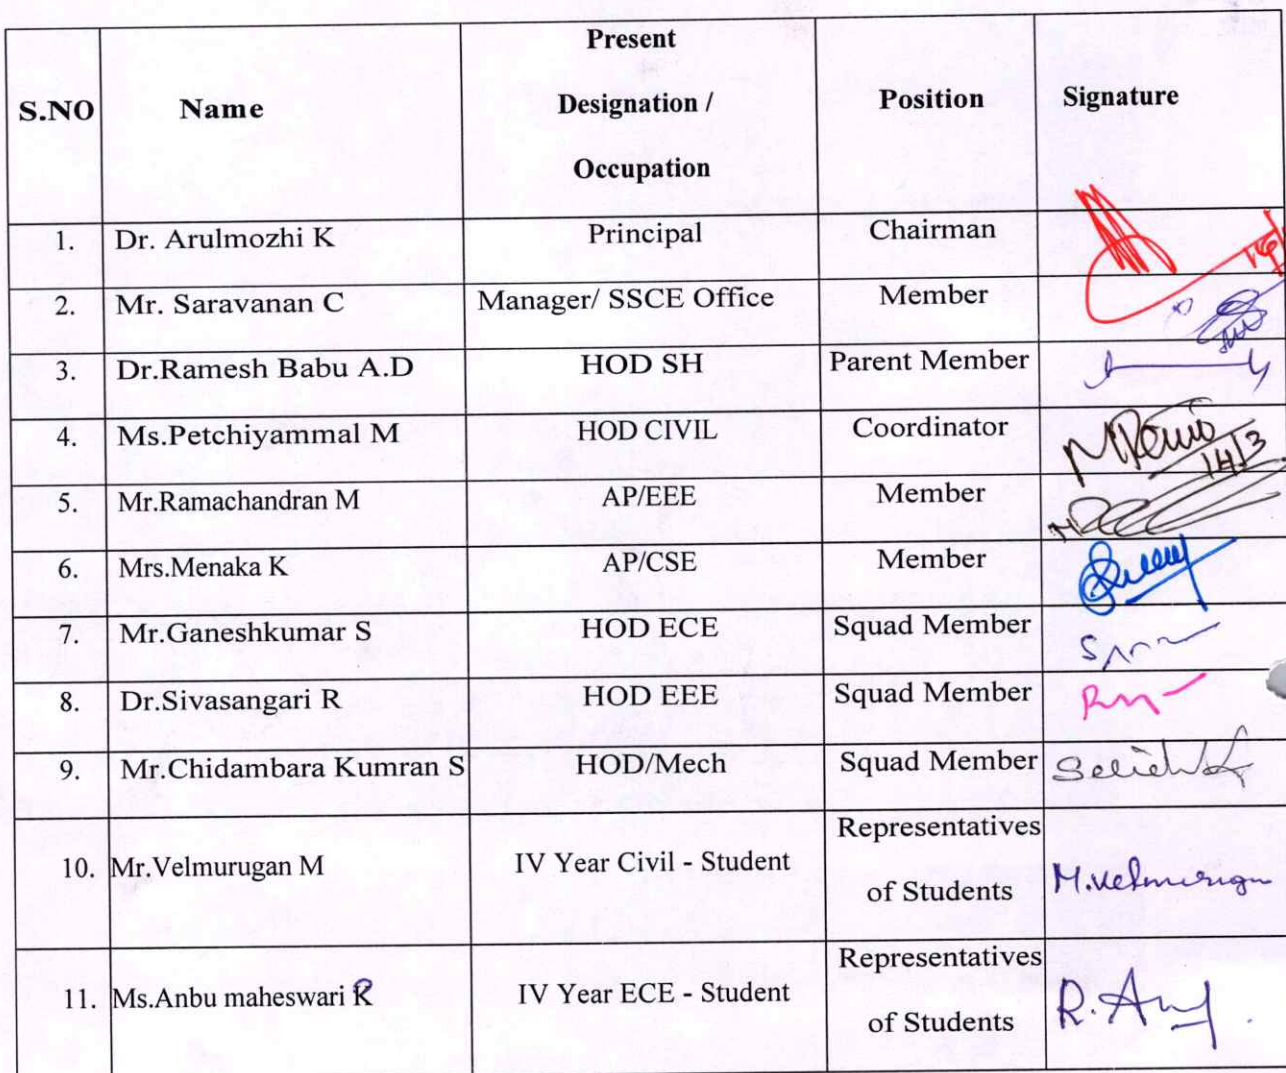 S.NO Name Present Designation / Occupation Position Signature
1. Dr. Arulmozhi K Principal Chairman
2. Mr. Saravanan C Manager/ SSCE Office Member
3. Dr.Ramesh Babu A.D HOD SH Parent Member
4. Ms.Petchiyammal M HOD CIVIL Coordinator 14/3
5. Mr.Ramachandran M AP/EEE Member
6. Mrs.Menaka K AP/CSE Member
7. Mr.Ganeshkumar S HOD ECE Squad Member
8. Dr.Sivasangari R HOD EEE Squad Member
9. Mr.Chidambara Kumran S HOD/Mech Squad Member
10. Mr.Velmurugan M IV Year Civil - Student Representatives of Students M.Velmurugan
11. Ms.Anbu maheswari R IV Year ECE - Student Representatives of Students